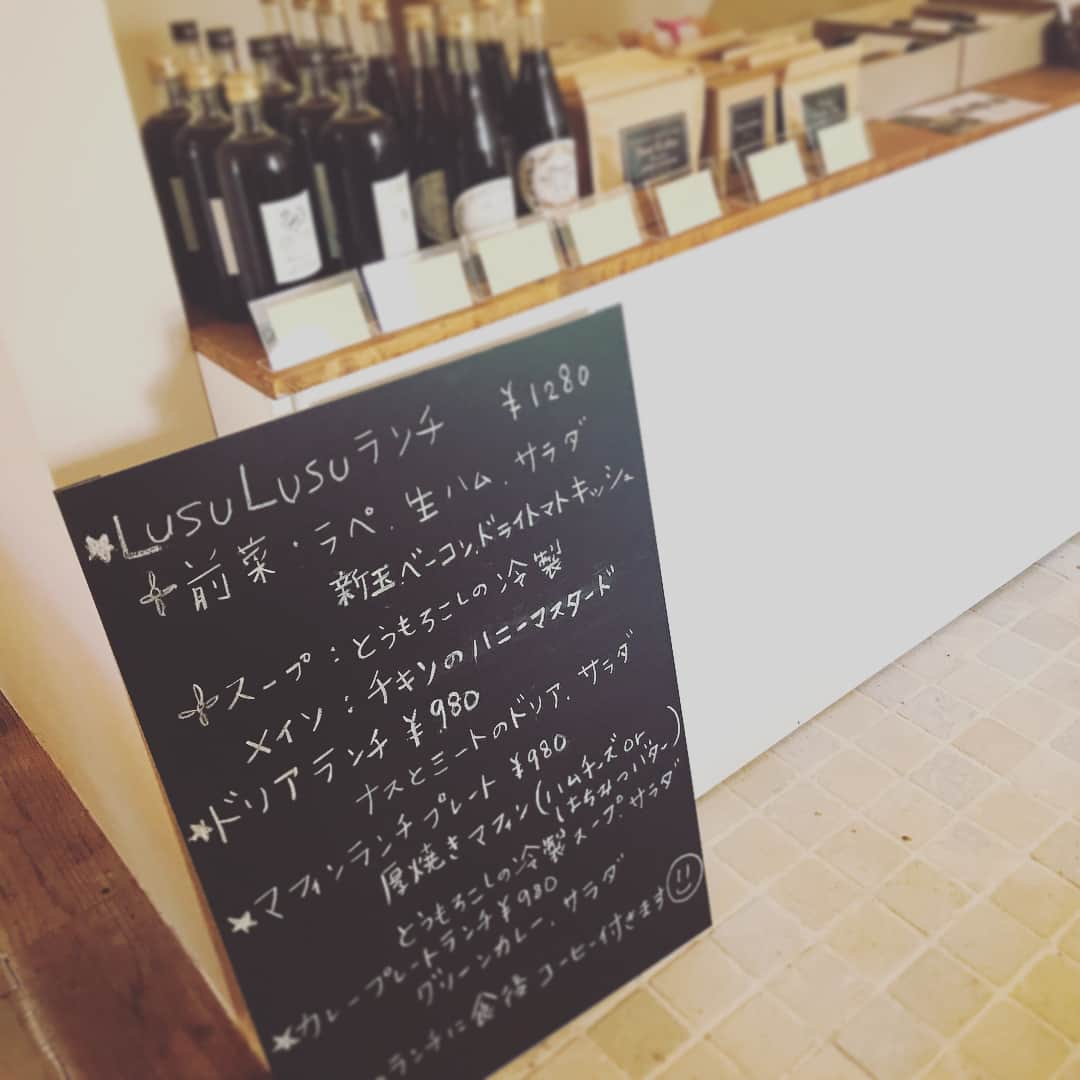 LusuLusuランチ ¥1280
前菜・ラペ.生ハム.サラダ
新玉.ベーコン.ドライトマトキッシュ
スープ:とうもろこしの冷製
メイン:チキンのハニーマスタード
ドリアランチ ¥980
ナスとミートのドリア.サラダ
マフィンランチプレート ¥980
厚焼きマフィン(ハムチーズor
はちみつバター)
とうもろこしの冷製スープ.サラダ
カレープレートランチ¥980
グリーンカレー.サラダ
ランチに食後コーヒー付きます